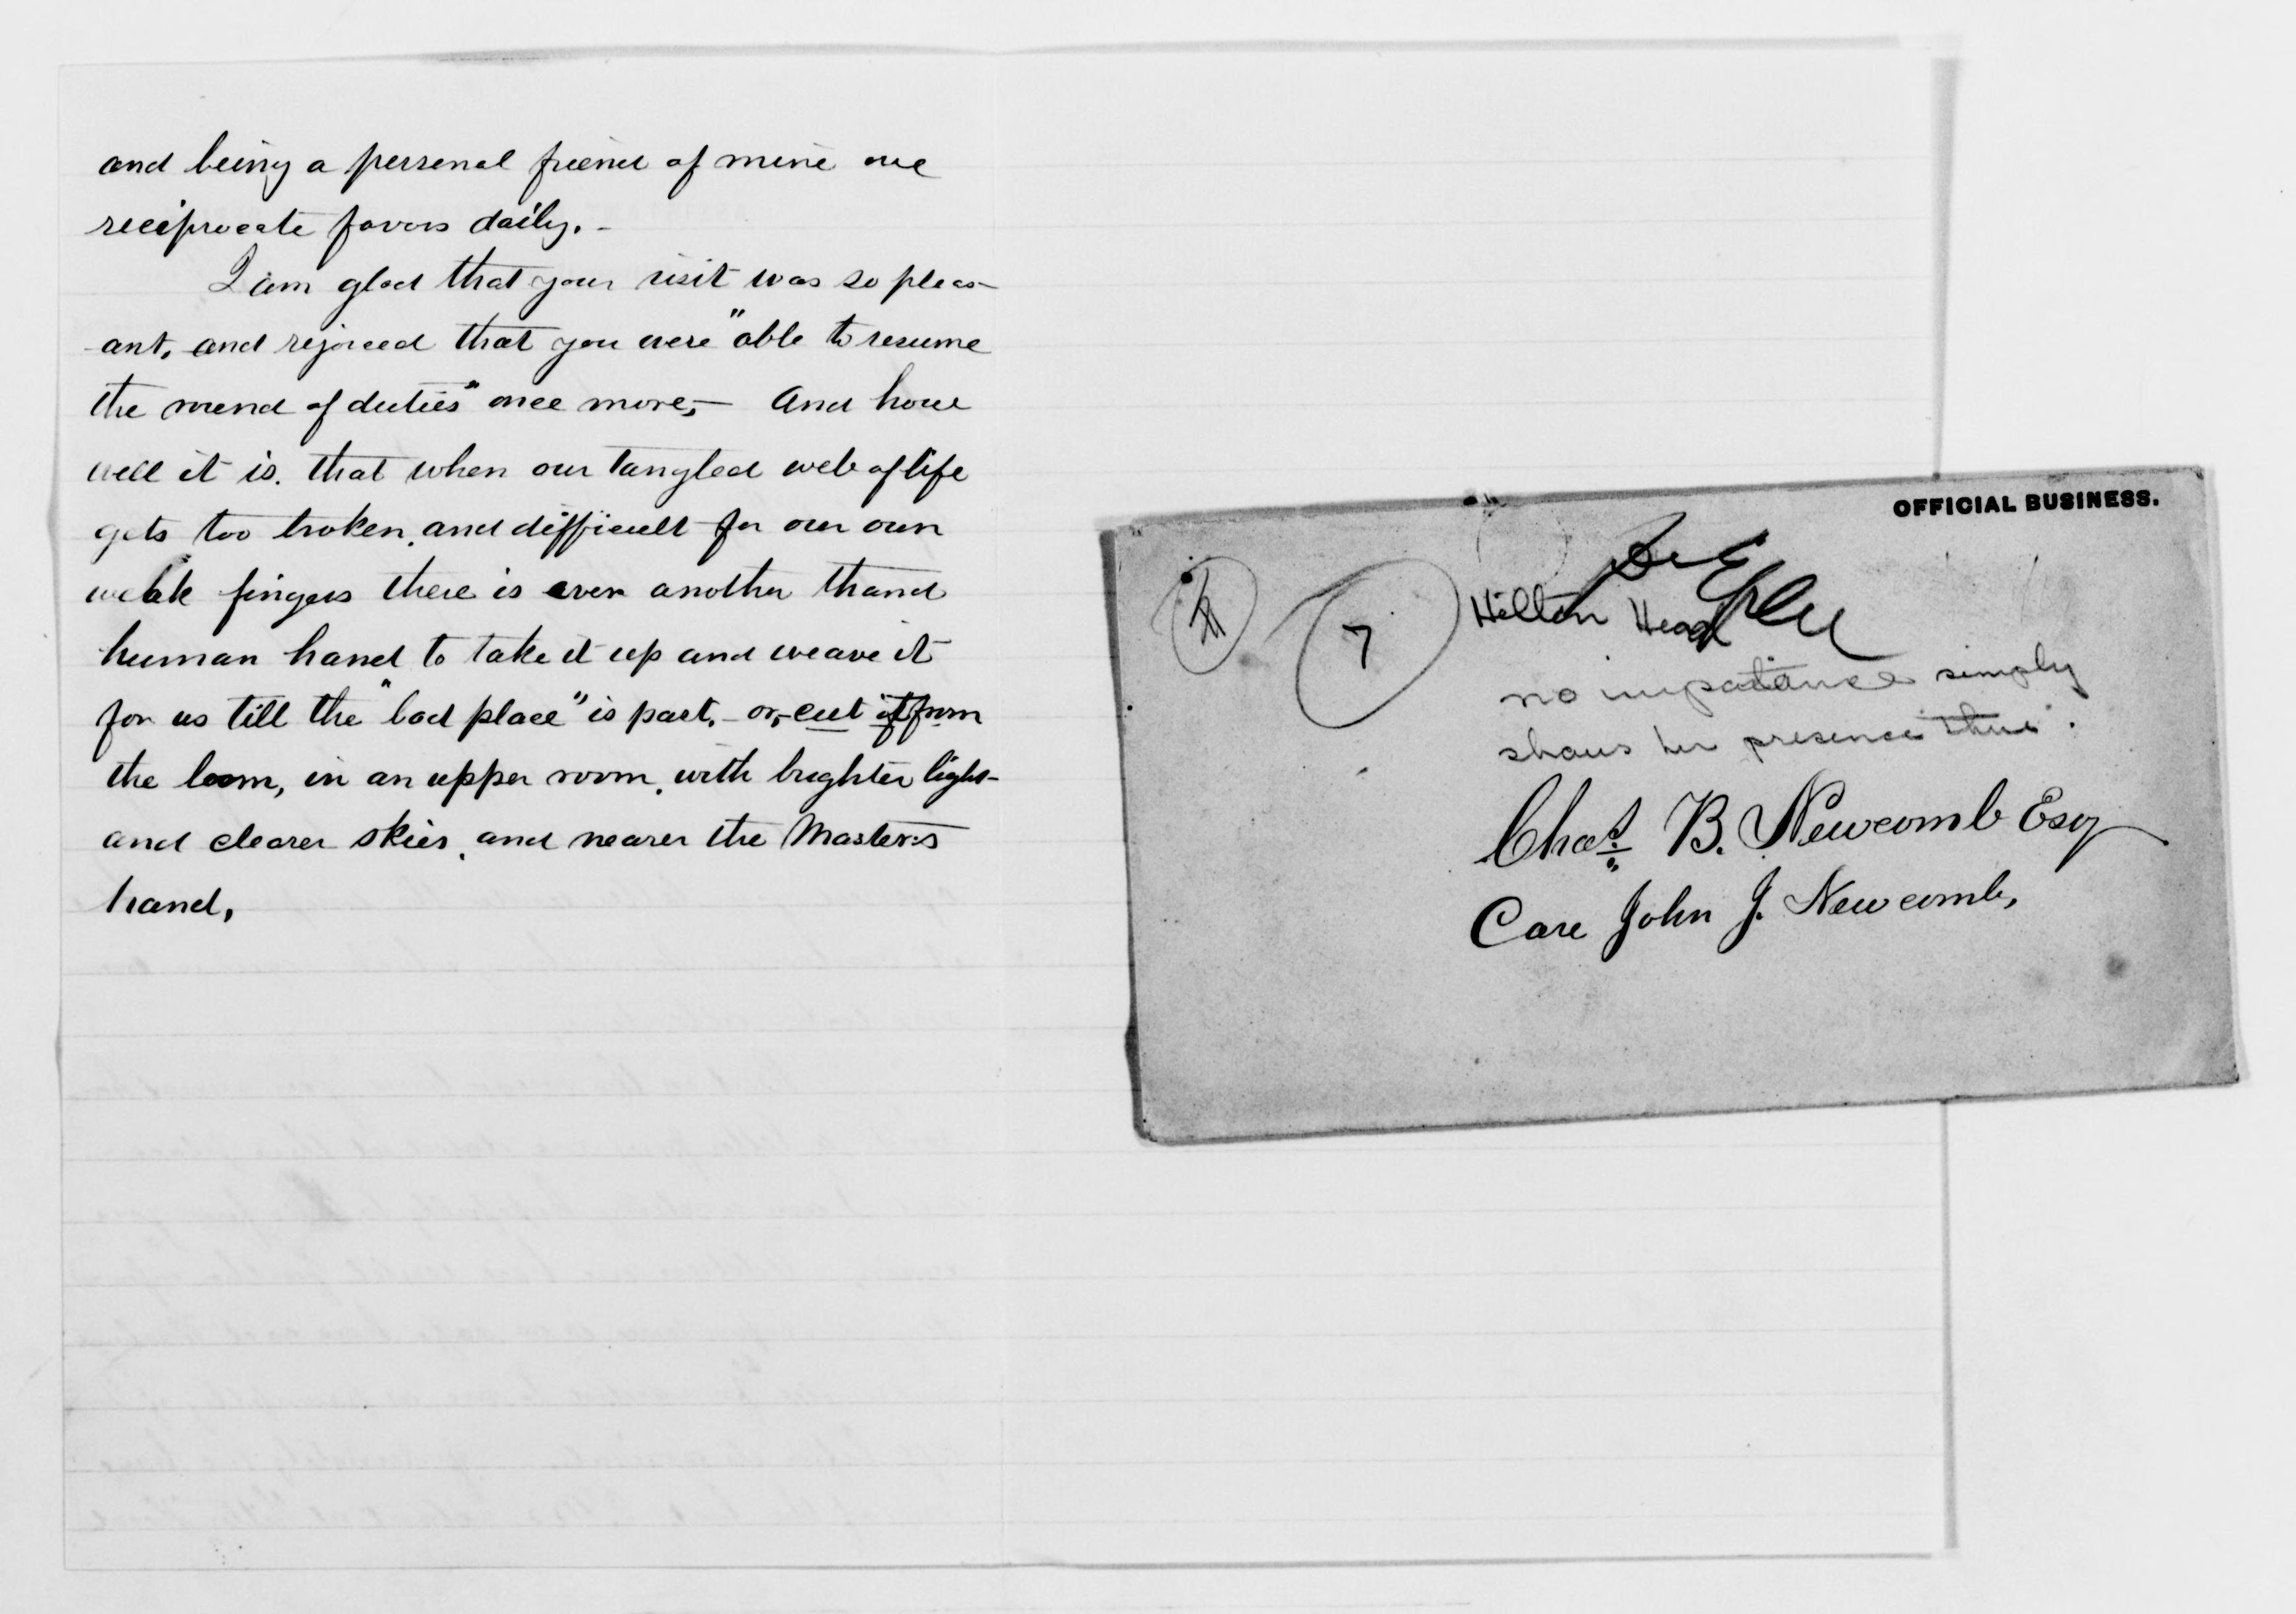 and being a personal friend of mine we
reciprocate favors daily. -
I am glad that your visit was so pleas-
ant, and rejoiced that you were "able to resume
the round of duties" once more, — And how
well it is. that when our tangled web of life
gets too broken, and difficult for our own
weak fingers there is ever another thand
human hand to take it up and weave it
for us till the "bad place" is past, - or, cut it from
the loom, in an upper room, with brighter light
and clearer skies, and nearer the Master's
hand,
OFFICIAL BUSINESS.
7
Hilton Head
no importance simply
shows her presence there.
Chas. B. Newcomb Esq
Care John J. Newcomb,